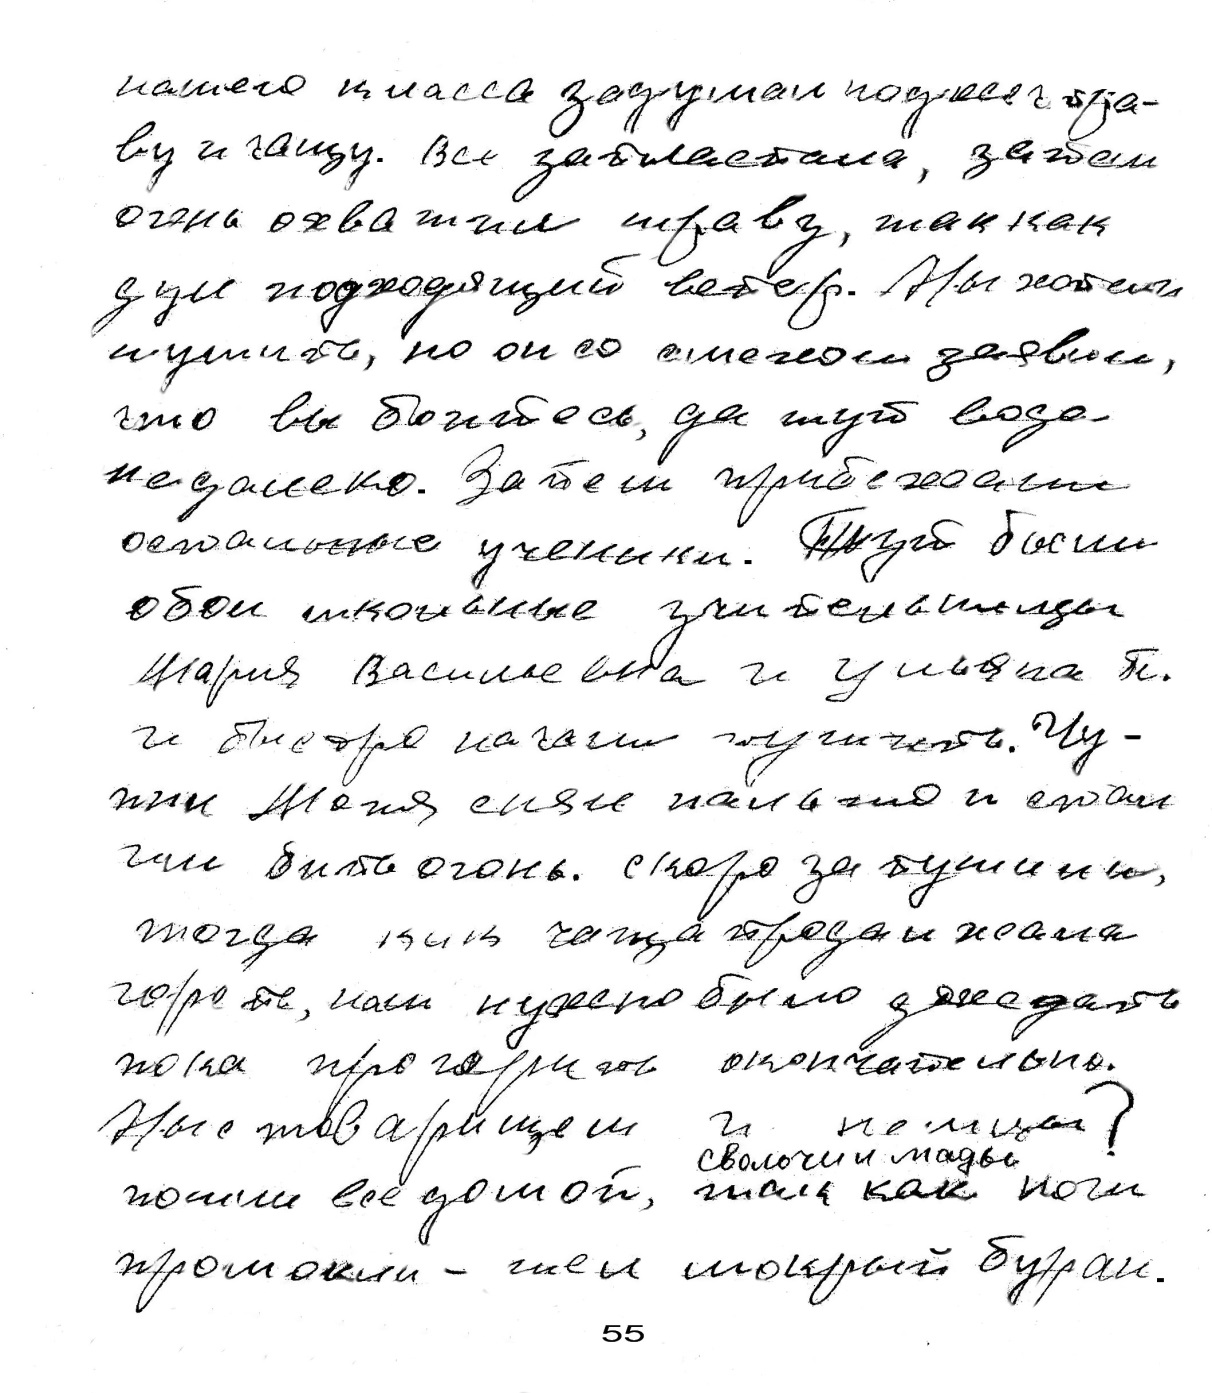 нашего класса задумал поджеч тра-
ву и чащу. Все запластала, затем
огень охватил траву, так как
дул подходящий ветер. Мы хотели
тушить, но он со смехом заявил,
что вы боитесь, да тут вода
недалеко. Затем прибежали
остальные ученики. Тут были
обои школьные учительницы
Мария Васильевна и Ульяна П.
и быстро начали тушить. Чу-
пин Женя снял пальто и стал
им бить огонь. Скоро затушили,
тогда как чаща продолжала
гореть, нам нужно было дождать
пока прогорить окончательно.
Мы с товарищем и немцы?
сволочи и мады
пошли все домой, так как ноги
промокли – шел мокрый буран.
55